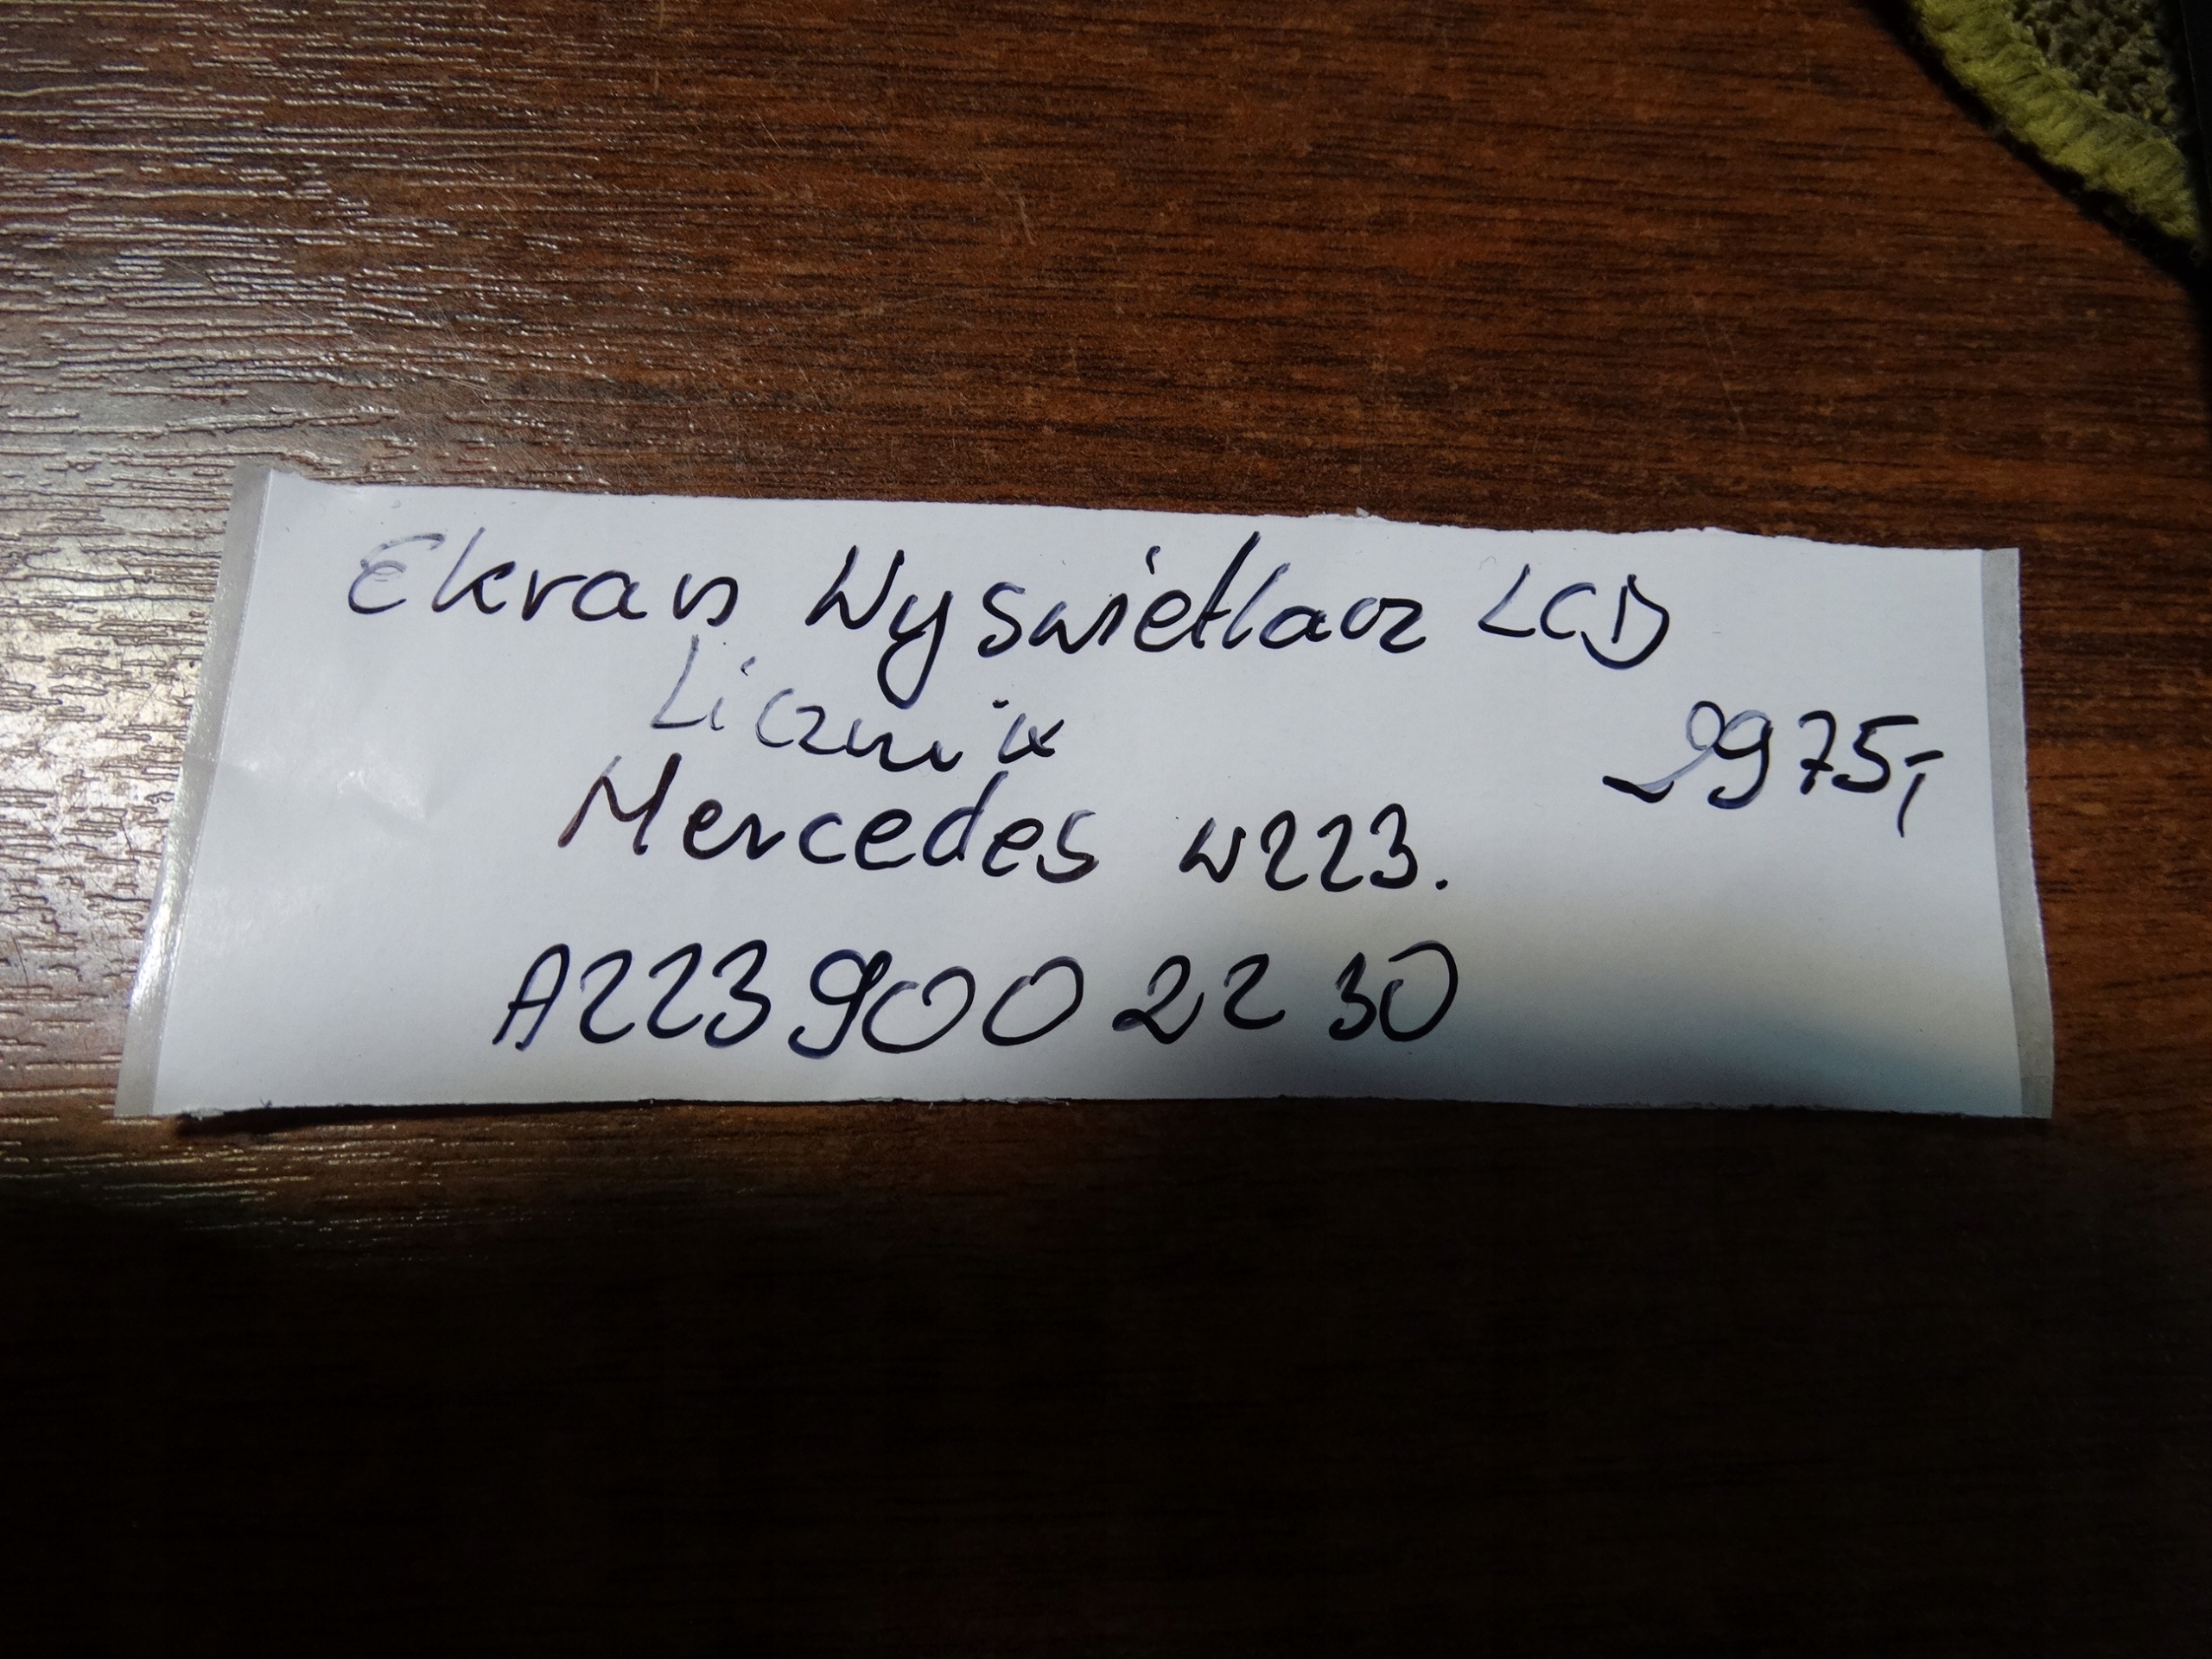 Ekran Wyświetlacz LCD
Licznik
9975,-
Mercedes W223.
A223 900 22 30